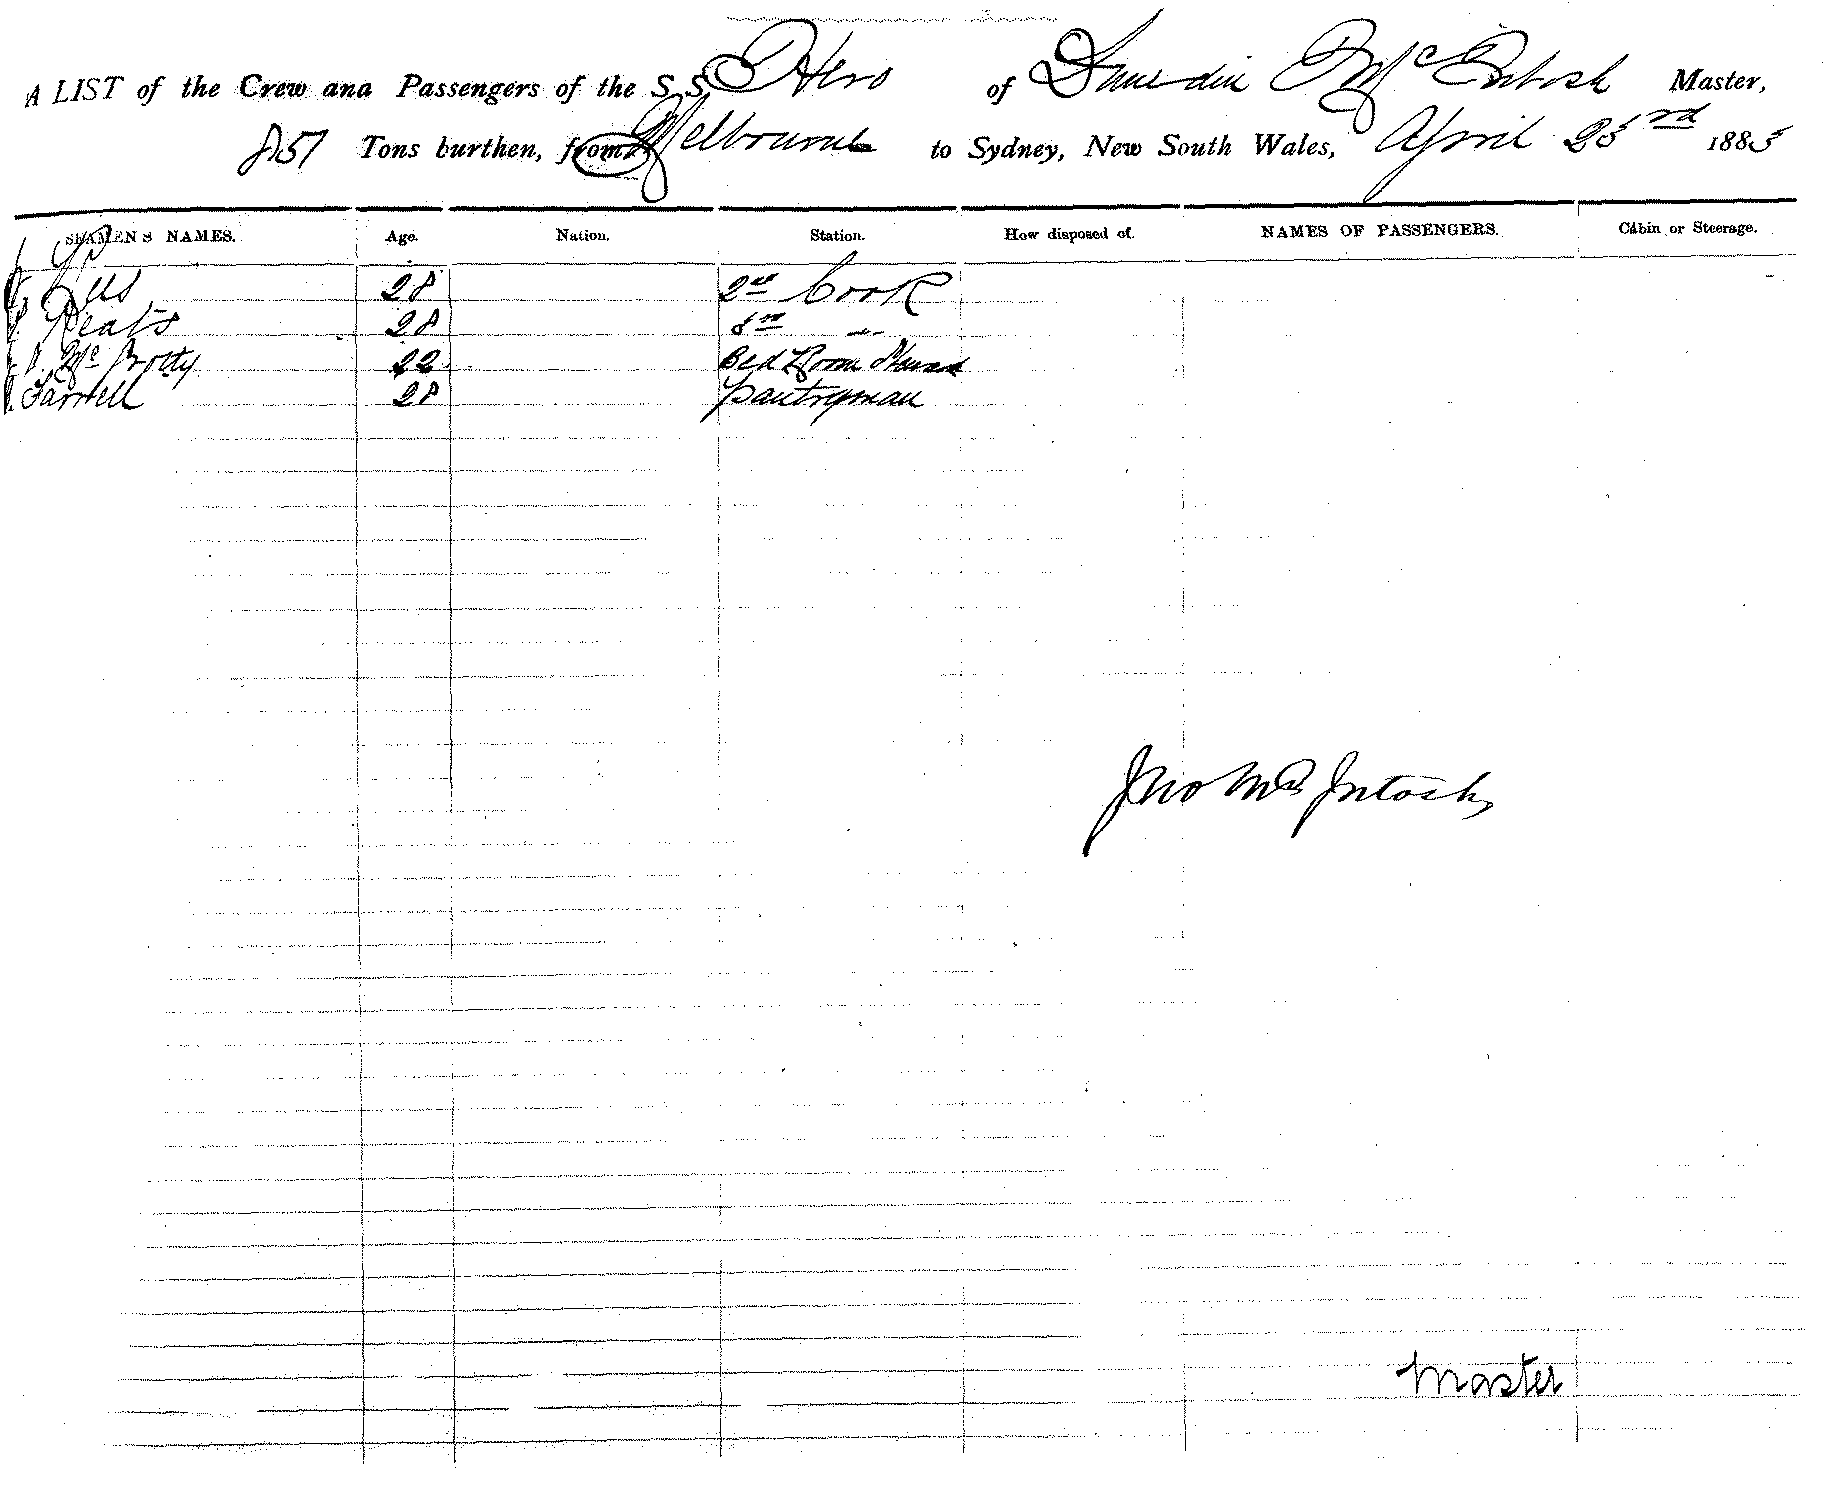 A LIST of the Crew and Passengers of the S.S. Hero of Dunedin McIntosh Master,
Tons burthen, from Melbourne to Sydney, New South Wales, April 23rd 1883
SEAMENS NAMES. Age. Nation. Station. How disposed of. NAMES OF PASSENGERS. Cabin or Steerage.
28 2nd Cook
28 3rd "
22 Bed Room Steward
Farrell 28 Pantryman
Jno McIntosh
Master